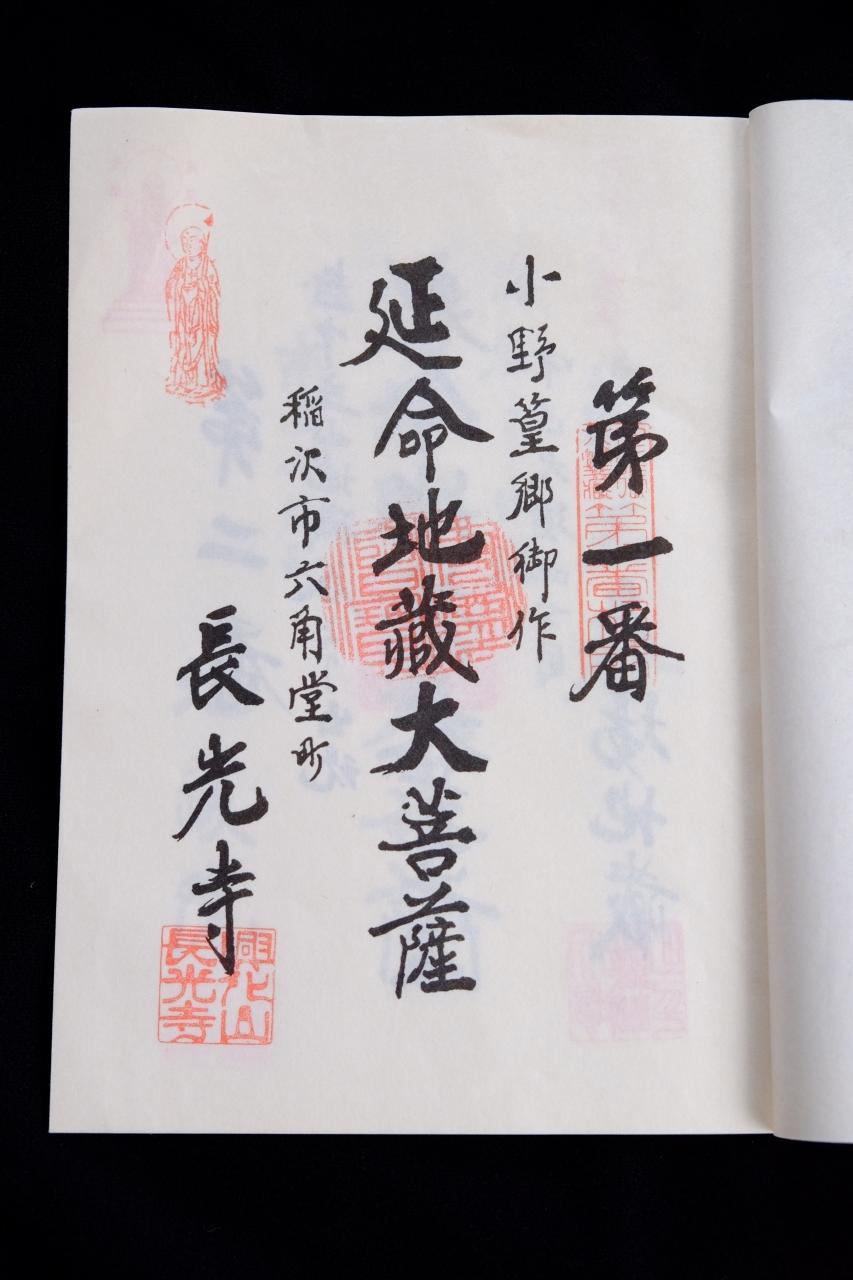 第一番
小野篁郷御作
延命地藏大菩薩
稲沢市六角堂町
長光寺
興化山
長光寺